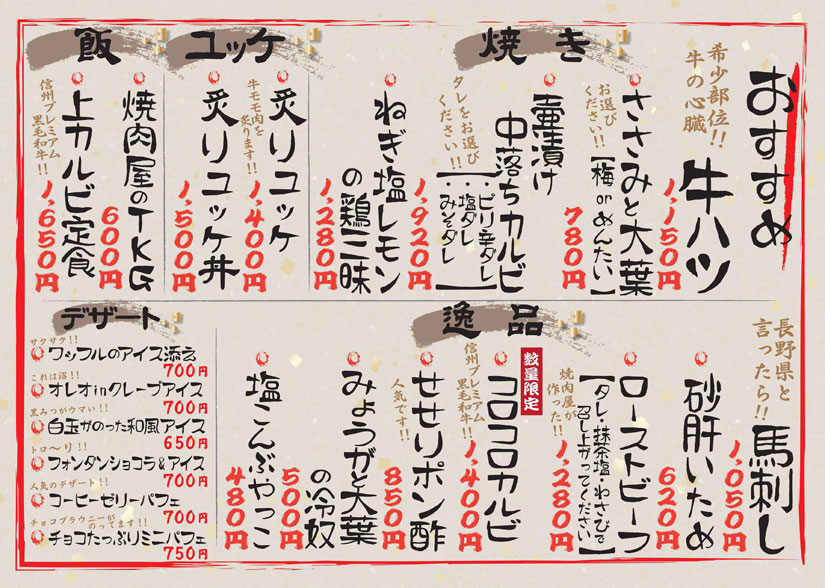 おすすめ
焼き
希少部位!!
牛の心臓
牛ハツ
1,150円
ささみと大葉
お選び
ください!!
【梅 or めんたい】
780円
壷漬け
中落ちカルビ
タレをお選び
ください!!
【・ピリ辛ダレ
・塩ダレ
・みそダレ】
1,920円
ねぎ塩レモン
の鶏三昧
1,280円
ユッケ
炙りユッケ
牛モモ肉を
炙ります!!
1,400円
炙りユッケ丼
1,500円
飯
焼肉屋のTKG
600円
上カルビ定食
信州プレミアム
黒毛和牛!!
1,650円
逸品
長野県と
言ったら!!
馬刺し
1,050円
砂肝いため
620円
ローストビーフ
焼肉屋が
作った!!
【タレ・抹茶塩・わさびで
召し上がってください】
1,280円
数量限定
コロコロカルビ
信州プレミアム
黒毛和牛!!
1,400円
せせりポン酢
人気です!!
850円
みょうがと大葉
の冷奴
500円
塩こんぶやっこ
480円
デザート
サクサク!!
ワッフルのアイス添え
700円
これは沼!!
オレオinクレープアイス
700円
黒みつがウマい!!
白玉がのった和風アイス
650円
トロ〜り!!
フォンダンショコラ&アイス
人気のデザート!!
700円
コーヒーゼリーパフェ
700円
チョコブラウニーが
のってます!!
チョコたっぷりミニパフェ
750円